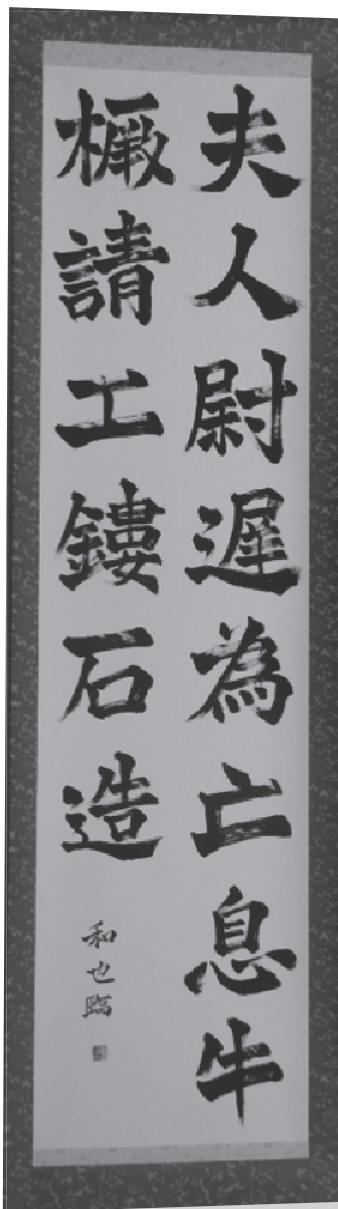 夫人尉遲為亡息牛
橛請工鏤石造
和也臨